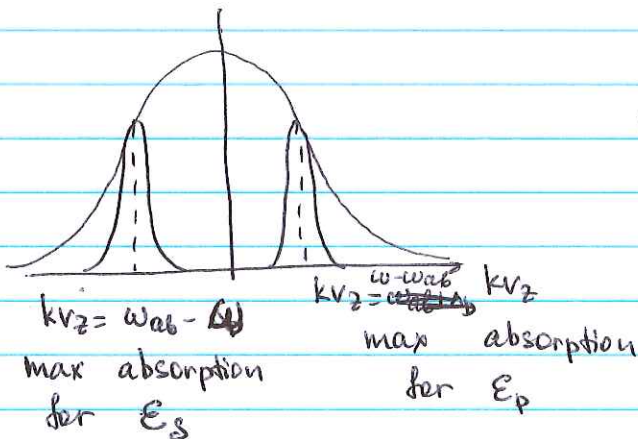 kv_z = ω_ab - ω
max absorption
for ε_s
kv_z = ω-ω_ab
kv_z
max absorption
for ε_p